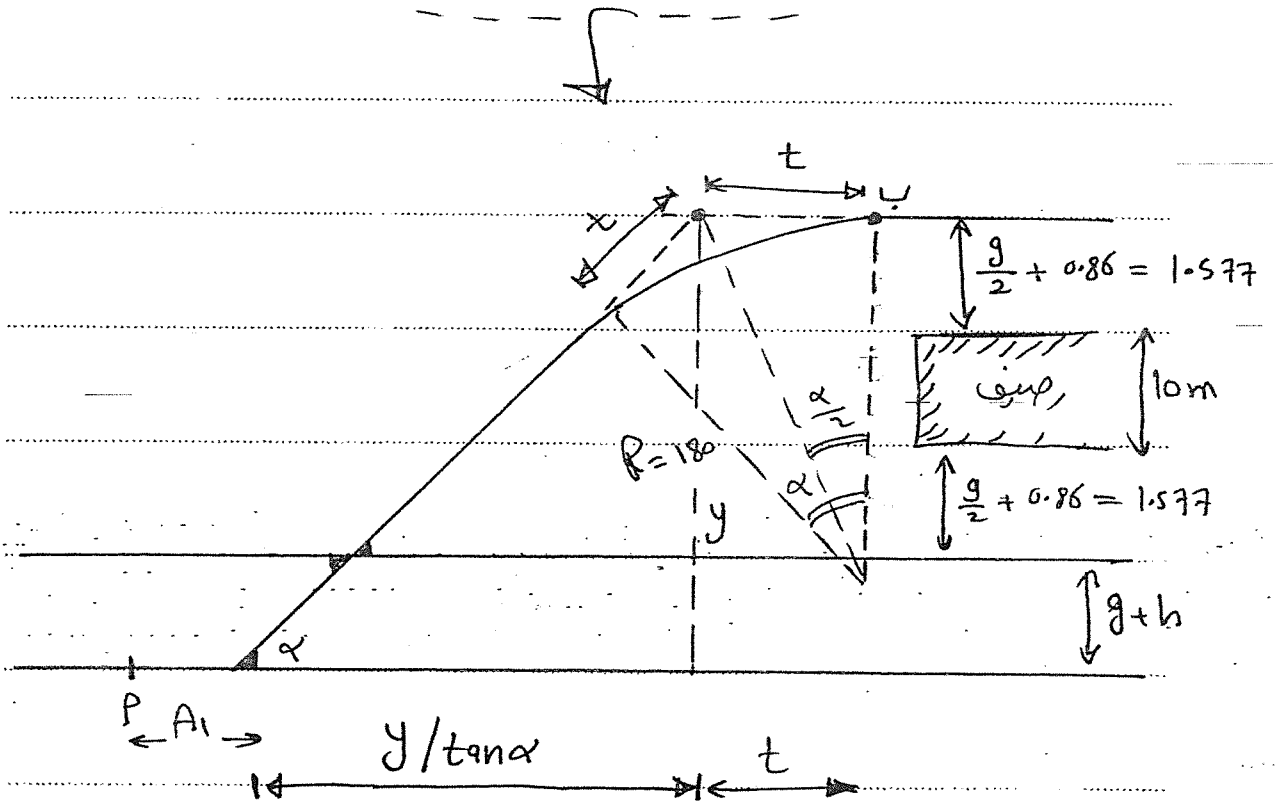 t
ب
x
g/2 + 0.86 = 1.577
رصيف
10m
α/2
R=180
α
g/2 + 0.86 = 1.577
y
g+h
α
P
A1
y/tanα
t